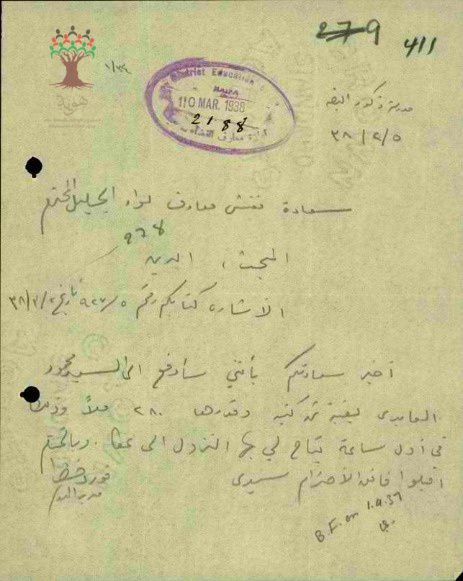 279 411
١/٣٤
هوية
District Education
HAIFA
10 MAR. 1938
2188
مدرسة ذكور
٣٨/٣/٥
سعادة مفتش معارف لواء الجليل المحترم
928
المبحث ، الدين
الاشارة كتابكم رقم ٩٢٧/٥ تاريخ ٣٨/٣/٢
اخبر سعادتكم بأنني سأدفع الى السيد محمود
العابدي بقية ثمن كتبه وقدرها ٢٨٠ ملاً وذلك
في اول ساعة يتاح لي بها النزول الى عكا . وبالختام
اقبلوا فائق الاحترام سيدي
فوزي
مدير المدرسة
B.F. on 1.4.37